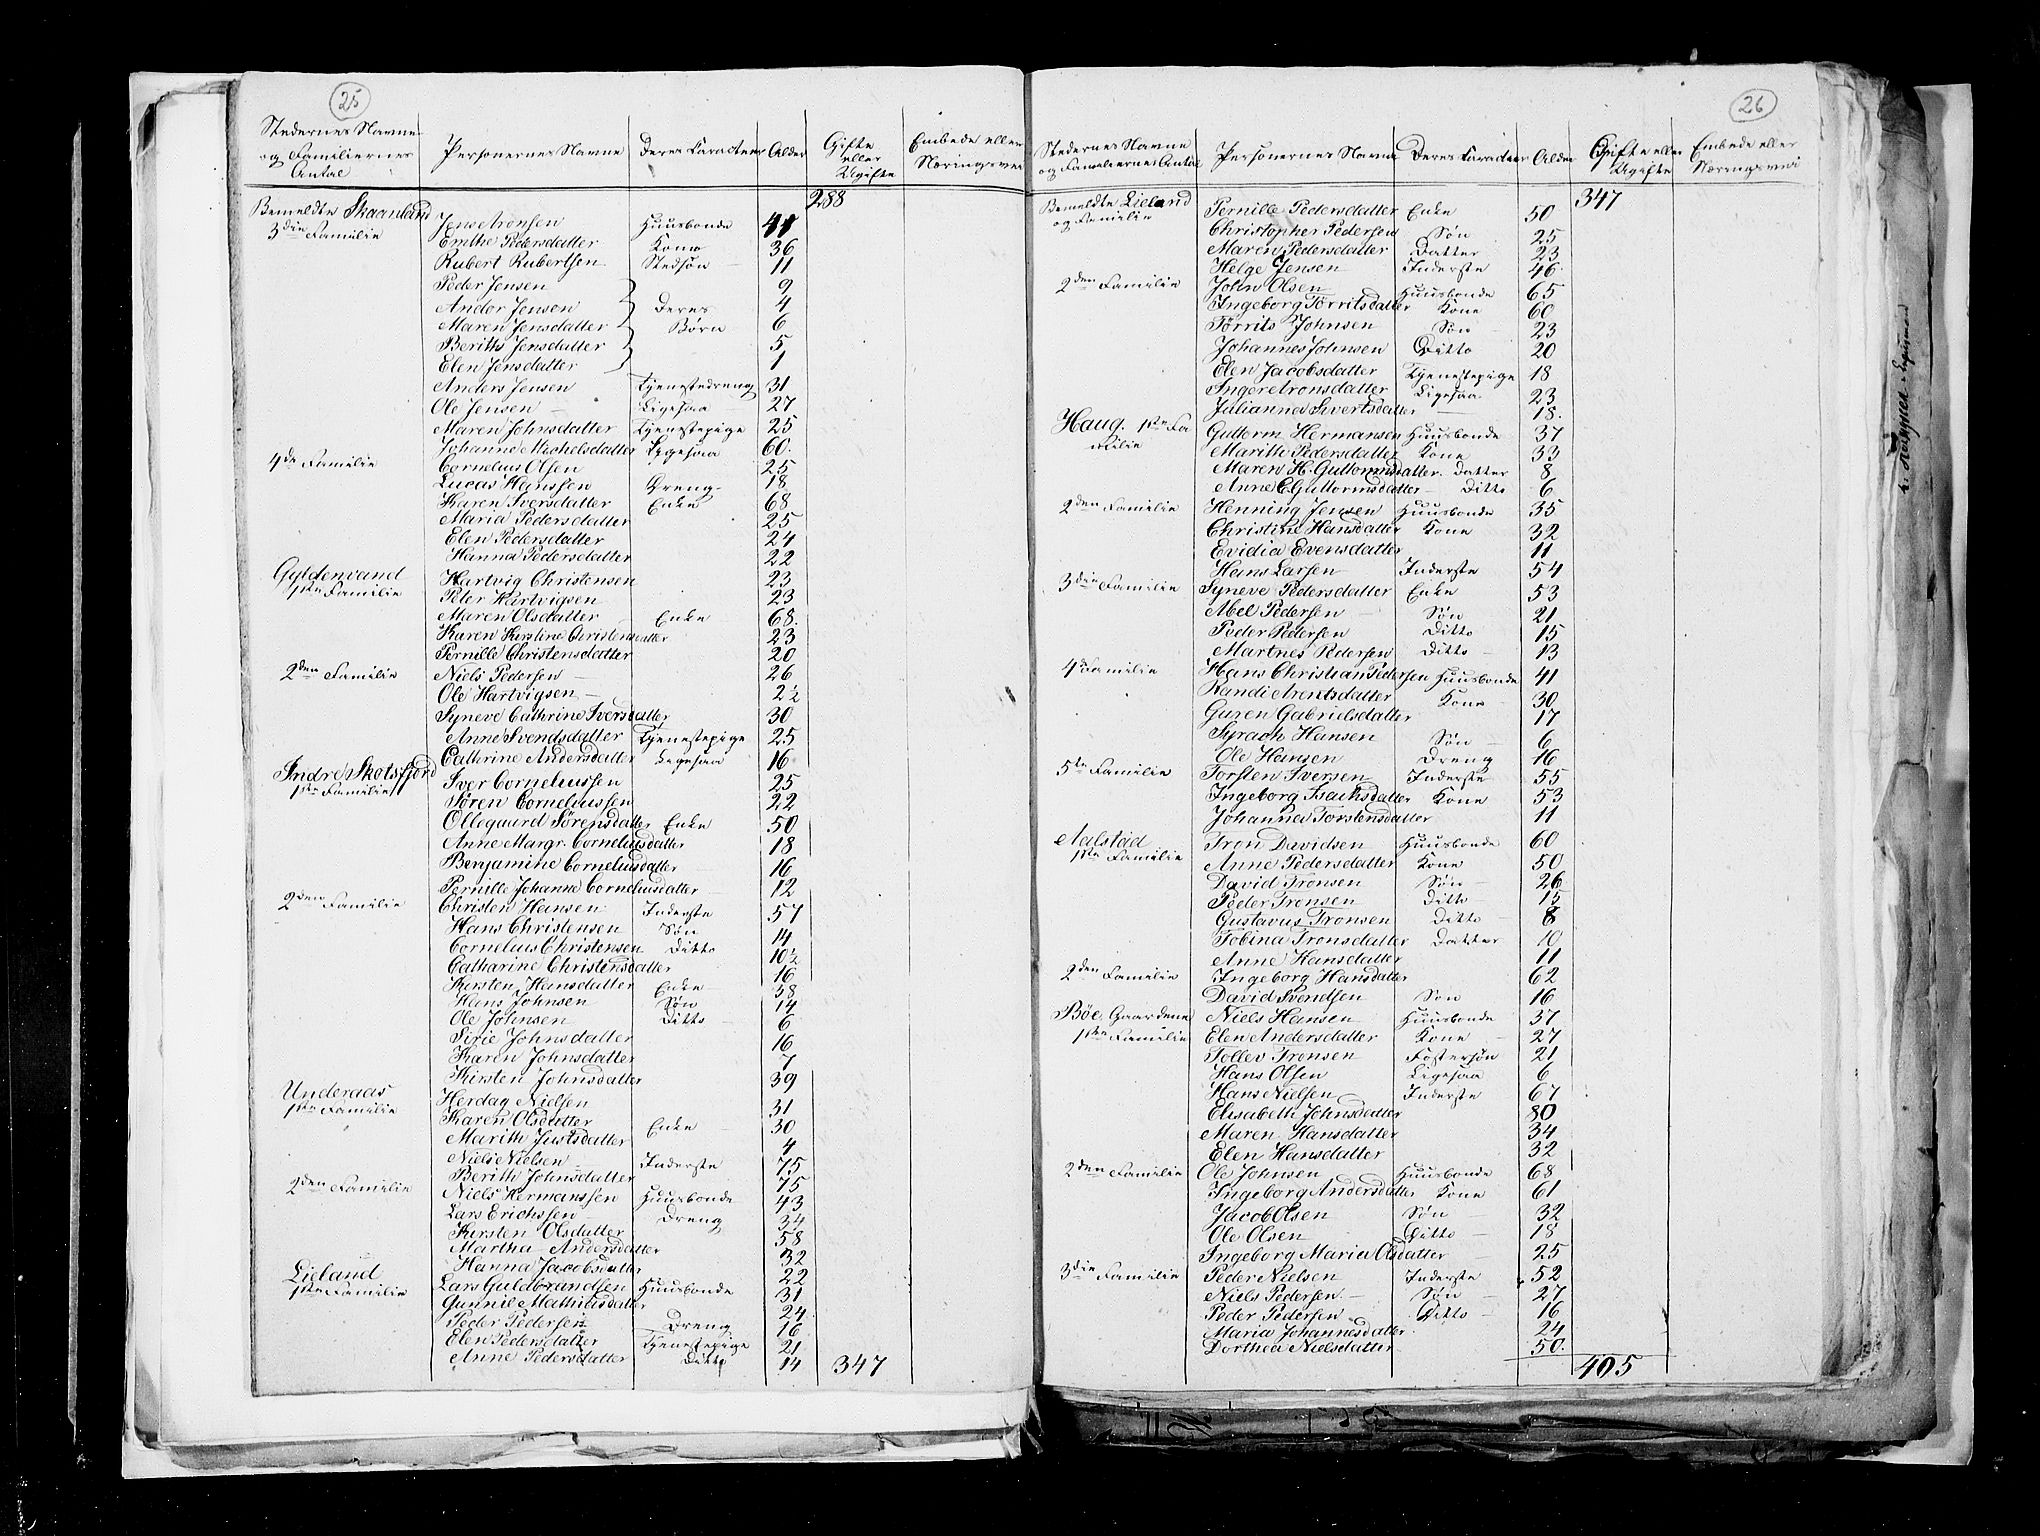 25
Stedernes Navne og Familiernes Antal | Personernes Navne | Deres Caracteer | Alder | Gifte eller Ugifte | Embede eller Næringsvei
288
Bemeldte Skaanland
3die Familie Jens Aronsen Huusbonde 41
Emthe Pedersdatter Kone 36
Rubert Rubertsen Stedsøn 11
Peder Jensen 9
Andor Jensen Deres 4
Maren Jensdatter Børn 6
Berith Jensdatter 5
Elen Jensdatter 1
Anders Jensen Tjenestedreng 31
Ole Jensen Ligesaa 27
Maren Johnsdatter Tjenestepige 25
Johanne Michelsdatter Ligesaa 60
4de Familie Cornelius Olsen 25
Lucas Hanssen Dreng 18
Karen Iversdatter Enke 68
Maria Pedersdatter 25
Elen Pedersdatter 24
Hanna Pedersdatter 22
Gyldenvand Hartvig Christensen 23
1ste Familie Peter Hartvigsen 23
Maren Olsdatter Enke 68
Karen Kirstine Christensdatter 23
Pernille Christensdatter 20
2den Familie Niels Pedersen 26
Ole Hartvigsen 2½
Syneve Cathrine Iversdatter 30
Anne Svendsdatter Tjenestepige 25
Cathrine Andersdatter Ligesaa 16
Indre Skotsfjord
1ste Familie Iver Corneliussen 25
Søren Corneliussen 22
Ollegaard Sørensdatter Enke 50
Anne Margr. Corneliusdatter 18
Benjamine Corneliusdatter 16
Pernille Johanne Corneliusdatter 12
2den Familie Christen Hansen Inderste 57
Hans Christensen Søn 14
Cornelius Christensen Ditto 10½
Catharine Christensdatter 16
Kirsten Hansdatter Enke 58
Hans Johnsen Søn 14
Ole Johnsen Ditto 6
Sirie Johnsdatter 16
Karen Johnsdatter 7
Kirsten Johnsdatter 39
Underaas
1ste Familie Herdag Nielsen 31
Karen Olsdatter 30
Marith Justsdatter Enke 4
Niels Nielsen Inderste 75
Berith Johnsdatter 75
2den Familie Niels Hermanssen Huusbonde 43
Lars Erichssen Dreng 34
Kirsten Olsdatter 58
Martha Andersdatter 32
Hanna Jacobsdatter 22
Lieland
1ste Familie Lars Guldbrandsen Huusbonde 31
Gunnil Mathiasdatter 24
Peder Pedersen Dreng 16
Elen Pedersdatter Tjenestepige 21
Anne Pedersdatter Ditto 14 347
26
Stedernes Navne og Familiernes Antal | Personernes Navne | Deres Caracteer | Alder | Gifte eller Ugifte | Embede eller Næringsvei
347
Bemeldte Lieland og Familie Pernille Pedersdatter Enke 50
Christopher Pedersen Søn 25
Maren Pedersdatter Datter 23
Helge Jensen Inderste 46
2den Familie John Olsen Huusbonde 65
Ingeborg Torritsdatter Kone 60
Torrits Johnsen Søn 23
Johannes Johnsen Ditto 20
Elen Jacobsdatter Tjenestepige 18
Inger Aronsdatter Ligesaa 23
Julianna Sivertsdatter 18
Haug. 1ste Familie Guttorm Hermansen Huusbonde 37
Marith Pedersdatter Kone 33
Maren H. Guttormsdatter Datter 8
Anne C Guttormsdatter Ditto 6
2den Familie Henning Jensen Huusbonde 35
Christine Hansdatter Kone 32
Evidia Evensdatter 11
Hans Larsen Inderste 54
3die Familie Syneve Pedersdatter Enke 53
Abel Pedersen Søn 21
Peder Pedersen Ditto 15
Martnes Pedersen Ditto 13
4de Familie Hans Christian Pedersen Huusbonde 41
Randi Arentsdatter Kone 30
Guren Gabrielsdatter 17
Syrach Hansen Søn 6
Ole Hansen Dreng 16
5te Familie Torsten Iversen Inderste 55
Ingeborg Isachsdatter Kone 53
Johanna Torstensdatter 11
Aalstad Tron Davidsen Huusbonde 60
1ste Familie Anne Pedersdatter Kone 50
David Tronsen Søn 26
Peder Tronsen Ditto 15
Gustavus Tronsen Ditto 8
Tobina Tronsdatter Datter 10
Anne Hansdatter 11
2den Familie Ingeborg Hansdatter 62
David Svendsen Søn 16
Böe Gaardene Niels Hansen Huusbonde 37
1ste Familie Elen Andersdatter Kone 27
Tollev Tronsen Fostersøn 21
Hans Olsen Ligesaa 6
Hans Nielsen Inderste 67
Elisabeth Johnsdatter 80
Maren Hansdatter 34
Elen Hansdatter 32
2den Familie Ole Johnsen Huusbonde 68
Ingeborg Andersdatter Kone 61
Jacob Olsen Søn 32
Ole Olsen Ditto 18
Ingeborg Maria Olsdatter 25
3die Familie Peder Nielsen Inderste 52
Niels Pedersen Søn 27
Peder Pedersen Ditto 16
Maria Johannesdatter 24
Dorthea Nielsdatter 50
405